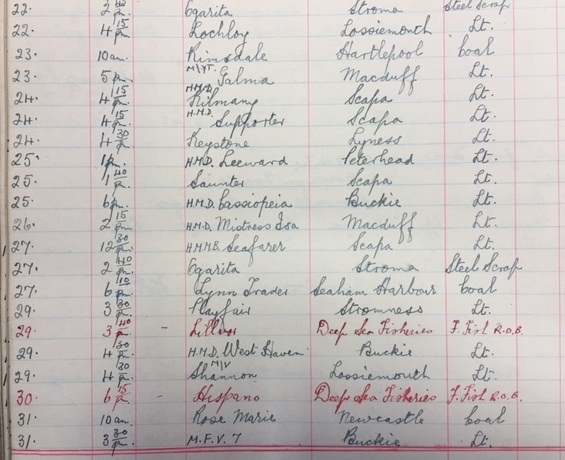 22. 2 pm. Ogarita Stroma Steel Scrap
22. 4 15 pm. Lochloy Lossiemouth Lt.
23. 10 am. Kinsdale Hartlepool Coal
23. 5 pm. M/YT. Galma Macduff Lt.
24. 4 15 p. H.M.D. Kilmany Scapa Lt.
24. 4 15 p. H.M.D. Supporter Scapa Lt.
24. 4 30 p. Keystone Lyness Lt.
25. 1 pm. H.M.D. Leeward Peterhead Lt.
25. 1 40 p. Saunter Scapa Lt.
25. 6 pm. H.M.D. Cassiopeia Buckie Lt.
26. 2 15 p. H.M.D. Mistress Isa Macduff Lt.
27. 12 30 p. H.M.M.B. Seafarer Scapa Lt.
27. 2 40 p. Ogarita Stroma Steel Scrap
27. 6 10 p. Lynn Trader Seaham Harbour Coal
29. 3 30 p. Playfair Stromness Lt.
29. 3 40 p. - Deep Sea Fisheries F. Fish R.O.B.
29. 4 30 p. H.M.D. West Haven Buckie Lt.
29. 4 30 p. M/V Shannon Lossiemouth Lt.
30. 6 15 p. - Hispano Deep Sea Fisheries F. Fish R.O.B.
31. 10 am. Rose Marie Newcastle Coal
31. 3 30 p. M.F.V. 7 Buckie Lt.